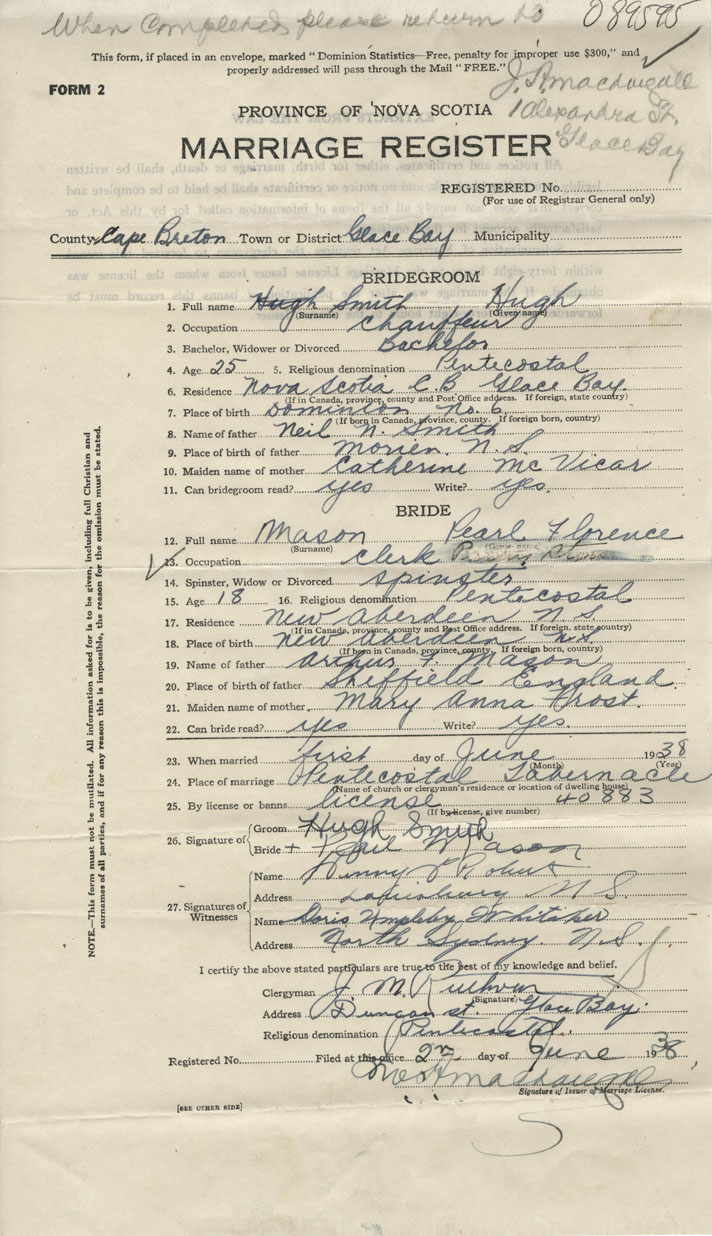 When Completed please return to 089595
This form, if placed in an envelope, marked "Dominion Statistics—Free, penalty for improper use $300," and
properly addressed will pass through the Mail "FREE."
FORM 2
1 Alexandra St.
Glace Bay
PROVINCE OF NOVA SCOTIA
MARRIAGE REGISTER
REGISTERED No.
(For use of Registrar General only)
County Cape Breton Town or District Glace Bay Municipality
BRIDEGROOM
1. Full name Hugh Smith Hugh
(Surname) (Given name)
2. Occupation Chauffeur
3. Bachelor, Widower or Divorced Bachelor
4. Age 25 5. Religious denomination Pentecostal
6. Residence Nova Scotia C.B Glace Bay.
(If in Canada, province, county and Post Office address. If foreign, state country)
7. Place of birth Dominion No. 6
(If born in Canada, province, county. If foreign born, country)
8. Name of father Neil N. Smith
9. Place of birth of father Morien. N.S.
10. Maiden name of mother Catherine Mc Vicar
11. Can bridegroom read? yes Write? yes.
BRIDE
12. Full name Mason Pearl Florence
(Surname)
13. Occupation Clerk
14. Spinster, Widow or Divorced Spinster
15. Age 18 16. Religious denomination Pentecostal
17. Residence New Aberdeen N.S.
(If in Canada, province, county and Post Office address. If foreign, state country)
18. Place of birth New Aberdeen N.S.
(If born in Canada, province, county. If foreign born, country)
19. Name of father Arthur F. Mason
20. Place of birth of father Sheffield England.
21. Maiden name of mother Mary Anna Frost.
22. Can bride read? yes Write? yes.
23. When married first day of June 1938
(Month) (Year)
24. Place of marriage Pentecostal Tabernacle
(Name of church or clergyman's residence or location of dwelling house)
25. By license or banns license 40883
(If by license, give number)
26. Signature of
Groom Hugh Smith
Bride + Pearl Mason
27. Signatures of Witnesses
Name
Address Louisburg N S
Name Doris Whitaker
Address North Sydney N.S.
I certify the above stated particulars are true to the best of my knowledge and belief.
Clergyman J. M.
(Signature)
Address Duncan st. Glace Bay.
Religious denomination Pentecostal.
Registered No. Filed at this office 27 day of June 1938
Signature of Issuer of Marriage License.
[SEE OTHER SIDE]
NOTE.—This form must not be mutilated. All information asked for is to be given, including full Christian and
surnames of all parties, and if for any reason this is impossible, the reason for the omission must be stated.